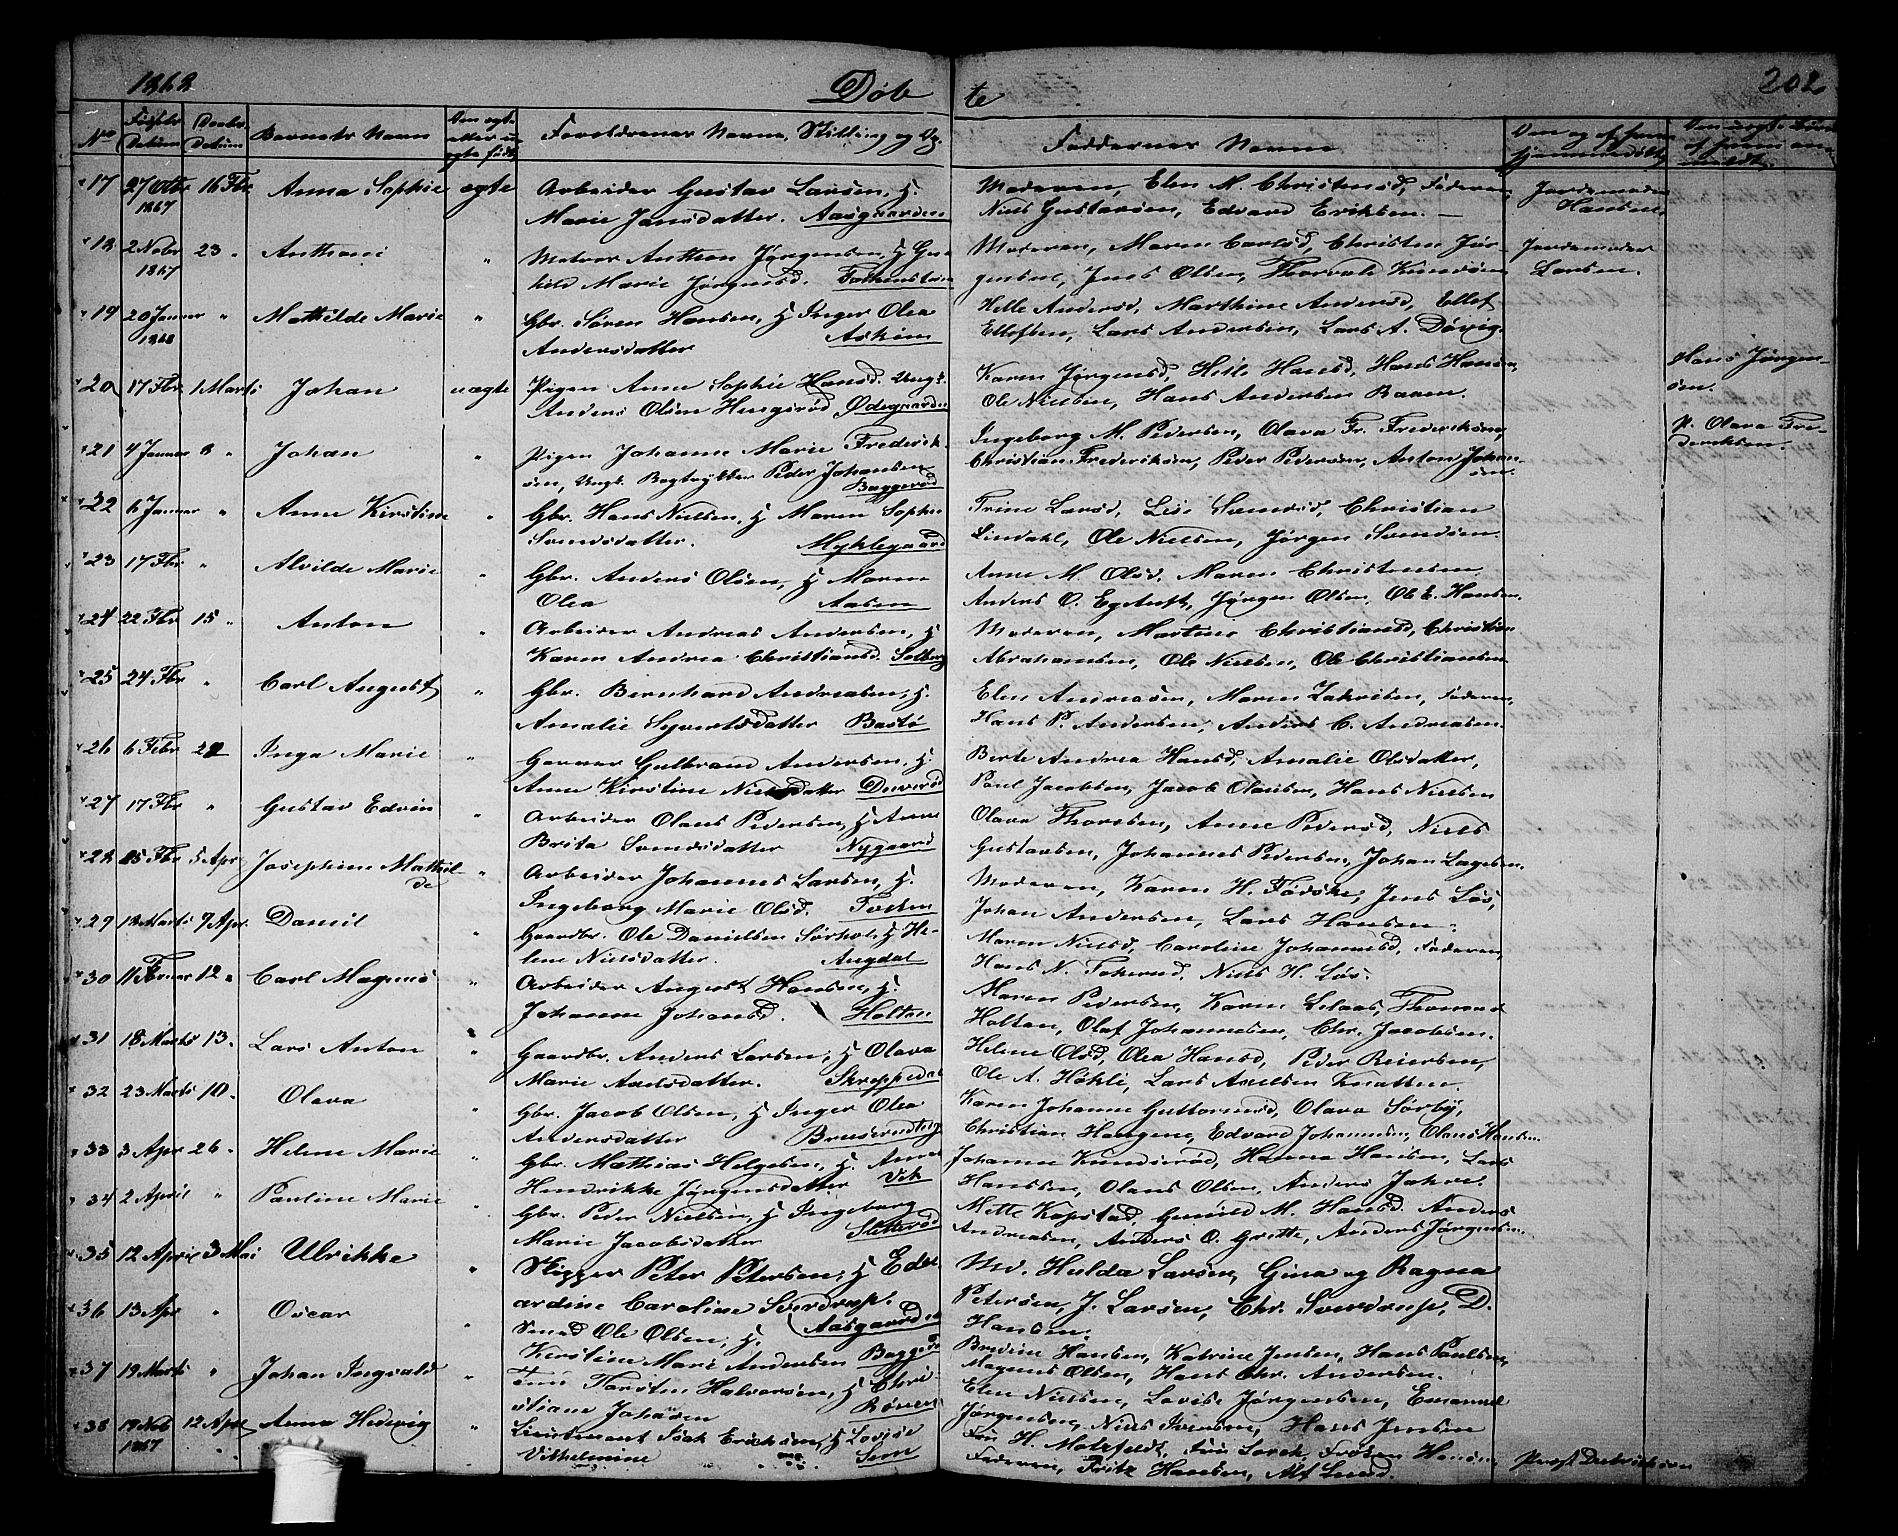 1868 Døbte 202
No Fødsels Datum Daabs Datum Barnets Navn Den ægte eller uægte født Forældrenes Navne, Stilling og Faddernes Navne
17 27 Octbr 1867 16 Fbr Anna Sophie ægte Arbeider Gustav Larsen, H. Moderen, Elen M. Christensd, Faderen, Jordemoder
Marie Jansdatter. Aasgaarden Niels Gustavsen, Edvard Eriksen. Hansen.
18 2 Novbr 1867 23 " Anthoni " Matros Anthon Jørgensen, H Gun Moderen, Maren Carlsd, Christen Jør- Jordemoder
hild Marie Jørgensd. Falkensteen gensen, Jens Olsen, Thorvald Knudsen Larsen.
19 20 Januar 1868 " Mathilde Marie " Gbr. Søren Hansen, H Inger Olea Helle Andersd, Marthine Andersd, Ellef
Andersdatter Askim Ellefsen, Lars Andersen, Lars A. Døvig.
20 17 Fbr 1 Marts Johan uægte Pigen Anne Sophie Hansd. Ungk. Karen Jørgensd, Helle Hansd, Hans Hansen, Hans Jørgen-
Anders Olsen Hengsrød Ødegaarden Ole Nielsen, Hans Andersen Raven. sen.
21 4 Januar 8 " Johan " Pigen Johanne Marie Frederik- Ingeborg M. Pedersen, Olava Fr. Frederiksen, P. Olava Fre-
sen, Ungk. Bogtrykker Peder Johansen Christian Frederiksen, Peder Pedersen, Anton Johan- deriksen.
Baggerød sen.
22 6 Januar " Anne Kirstine " Gbr. Hans Nielsen, H Maren Sophie Trine Larsd, Lise Svendsd, Christian
Svendsdatter. Myklegaard Lindahl, Ole Nielsen, Jørgen Svendsen.
23 17 Fbr " Alvilde Marie " Gbr. Anders Olsen, H Maren Anne M. Olsd. Maren Christensen
Olea Aasen Anders O. , Jørgen Olsen, Ole E. Hansen.
24 22 Fbr 15 " Anton " Arbeider Andreas Andersen, H Moderen, Martine Christiansd, Christian
Karen Andrea Christiansd. Solberg Abrahamsen, Ole Nielsen, Ole Christiansen
25 24 Fbr " Carl August " Gbr. Bernhard Andreasen, H. Elen Andreasen, Maren Zakrisen, Faderen,
Amalie Syvertsdatter Bastø Hans P. Andersen, Anders C. Andreasen.
26 6 Febr 22 Inga Marie " Garver Gulbrand Andersen, H. Berte Andrea Hansd, Amalie Olsdatter,
Anne Kirstine Nielsdatter Duverød Paul Jacobsen, Jacob Olausen, Hans Nielsen
27 17 Fbr " Gustav Edvin " Arbeider Olaus Pedersen, H Anne Olava Thorsen, Anne Pedersd, Niels
Brita Svendsdatter Nygaard Gustavsen, Johannes Pedersen, Johan Lagesen.
28 15 Fbr 5 Apr Josephine Mathil- " Arbeider Johannes Larsen, H. Moderen, Karen H. Føsker, Jens Løs,
de Ingeborg Marie Olsd. Johan Andersen, Lars Hansen.
29 12 Marts 9 Apr. Daniel Gaardbr. Ole Danielsen Sørhol, H He- Maren Nielsd, Caroline Johannesd, Faderen,
lene Nielsdatter. Augdal Hans N. , Niels H. Løs.
30 11 Februar 12 " Carl Magnus " Arbeider August Hansen, H. Maren Pedersen, Karen Lilaas, Thorvald
Johanne Johansd. Holtan Holtan, Olaf Johannesen, Chr. Jacobsen.
31 18 Marts 13. Lars Anton " Gaardbr. Anders Larsen, H Olava Helene Olsd, Olea Hansd, Peder Reiersen,
Marie Axelsdatter. Skreppedal Ole A. Høkli, Lars Axelsen Knatten.
32 23 Marts 10. Olava " Gbr. Jacob Olsen, H Inger Olea Karen Johanne Guttormsd, Olava Sørby,
Andersdatter Christian Haugene, Edvard Johannesen, Olaus Hansen.
33 3 Apr 26 " Helene Marie " Gbr. Mathias Helgesen, H. Anne Johanne Knudsrød, Hanna Hansen, Lars
Hendrikke Jørgensdatter Vik Hanssen, Olaus Olsen, Anders Jahre.
34 2 April " Pauline Marie Gbr. Peder Nielsen, H Ingeborg Mette Kopstad, Gunild M. Hansd. Anders
Marie Jacobsdatter Andreasen, Anders O. Grette, Anders Jørgensen.
35 12 April 3 Mai Ulrikke " Skipper Peter Petersen, H Edv- Md. Hulda Larsen, Gina og Ragna
ardine Caroline Sverdrup. Aasgaarden Petersen, J. Larsen, Chr. Sverdrup, D.
36 13 Apr " Oscar " Smed Ole Olsen, H. Hansen.
Kirstine Marie Andersen Bredine Hansen, Katrine Jensen, Hans Paulsen,
37 19 Marts " Johan Ingvald " Torsten Halvorsen, H Chri- Magnus Olsen, Hans Chr. Andersen.
stiane Johnsen Røren Elen Nielsen, Lovise Jørgensen, Emanuel
38 19 Nov 1867 12 Apr Anna Hedevig " Lieutenant Erichsen, H Lovise Jørgensen, Niels Ivensen, Hans Jensen
Vilhelmine Sem Fru H. Motzfeldt, Fru Lorck, Frøken Hansen,
Faderen, Fritz Hansen, Alf Lund. Provst Diederichsen